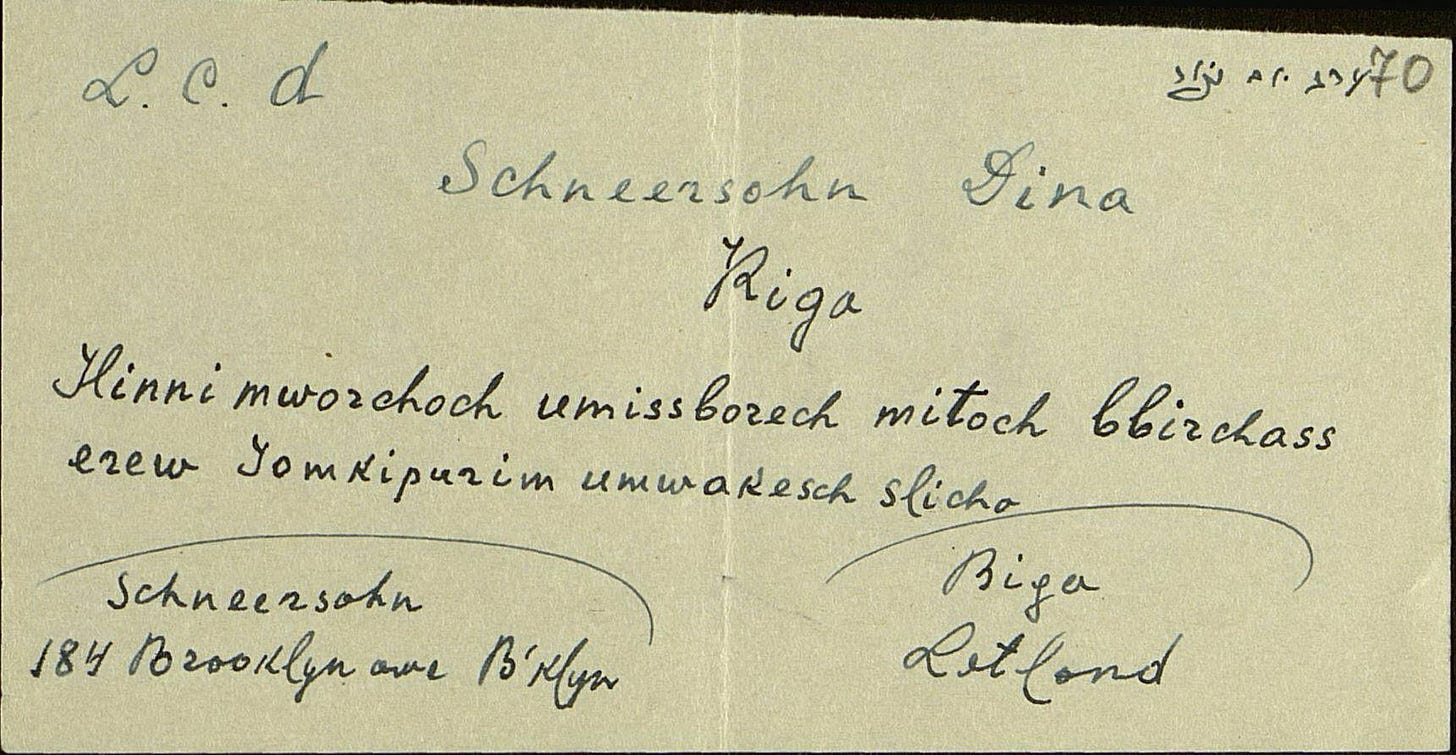 L. C. d
70
Schneersohn Dina
Riga
Hinni mworchoch umissborech mitoch bbirchass
erew Jomkipurim umwakesch slicho
Schneersohn
184 Brooklyn awe B'klyn
Riga
Letland